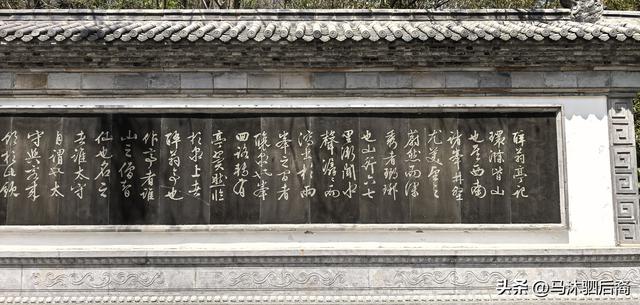 醉翁亭記
環滁皆山
也其西南
諸峯林壑
尤美望之
蔚然而深
秀者琅琊
也山行六七
里漸聞水
聲潺潺而
瀉出於兩
峯之間者
釀泉也峯
回路轉有
亭翼然臨
於泉上者
醉翁亭也
作亭者誰
山之僧智
仙也名之
者誰太守
自謂也太
守與客來
飲於此飲
头条 @马沐驷后裔